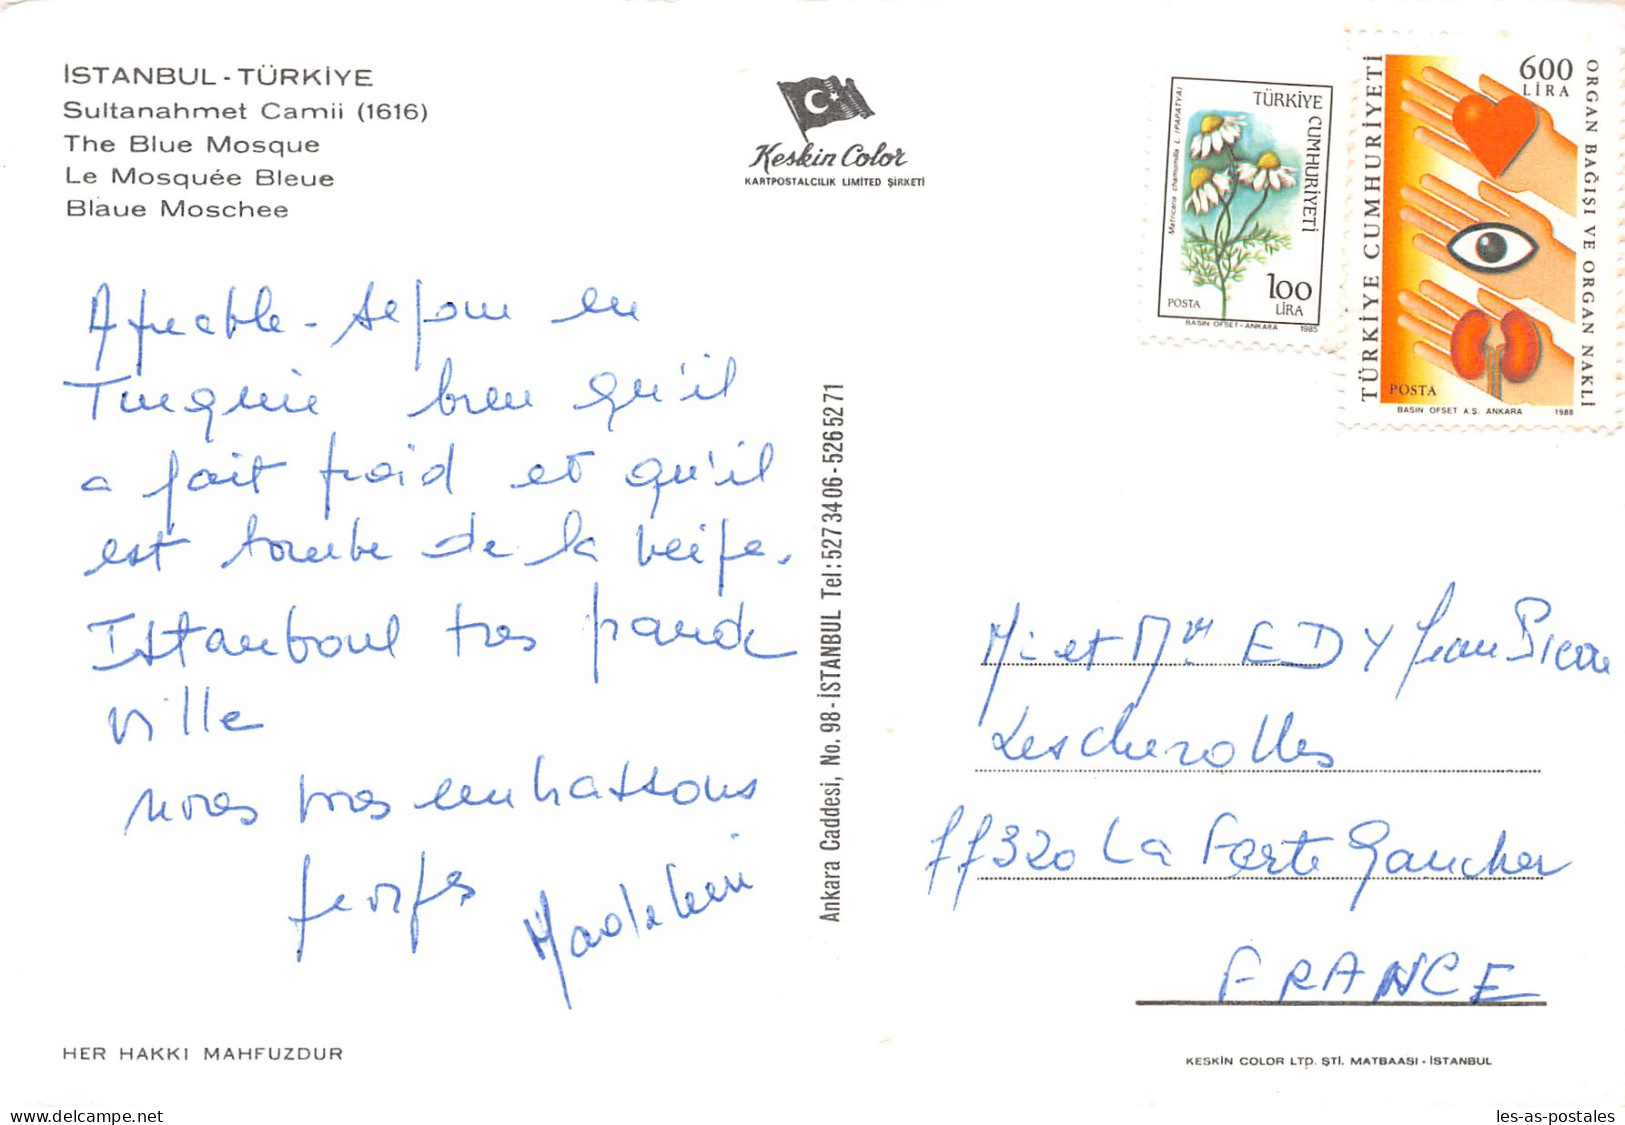 İSTANBUL - TÜRKİYE
Sultanahmet Camii (1616)
The Blue Mosque
Le Mosquée Bleue
Blaue Moschee
Keskin Color
KARTPOSTALCILIK LIMITED ŞIRKETI
Matricaria chamomilla L. (PAPATYA)
TÜRKİYE CUMHURİYETİ
100
LİRA
POSTA
BASIN OFSET - ANKARA 1985
TÜRKİYE CUMHURİYETİ
600
LİRA
ORGAN BAĞIŞI VE ORGAN NAKLİ
POSTA
BASIN OFSET A.Ş. ANKARA 1988
Agreable séjour en
Turquie bien qu'il
a fait froid et qu'il
est tombé de la neige.
Istanboul tres grande
ville
nous vous embrassons
Georges Madeleine
Ankara Caddesi, No. 98 - İSTANBUL Tel: 527 34 06 - 526 52 71
Mr et Mme EDY Jean Pierre
Lescherolles
77320 La Ferte Gaucher
FRANCE
HER HAKKI MAHFUZDUR
KESKİN COLOR LTD. ŞTİ. MATBAASI - İSTANBUL
les-as-delcampe.net
les-as-postales